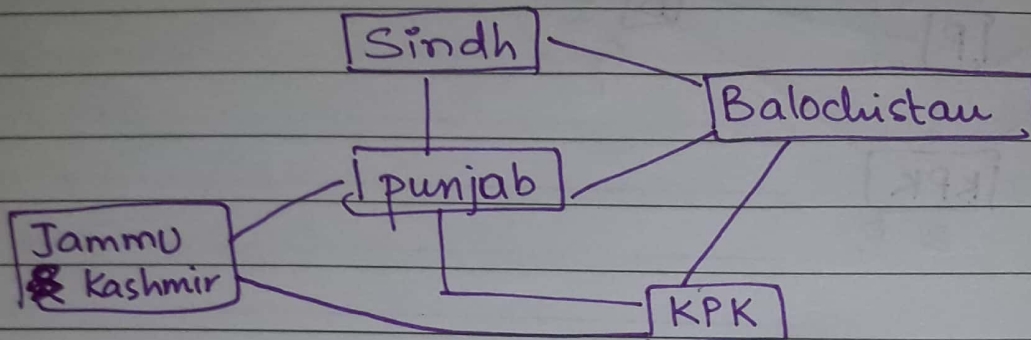 Sindh
Balochistan
punjab
Jammu
& Kashmir
KPK